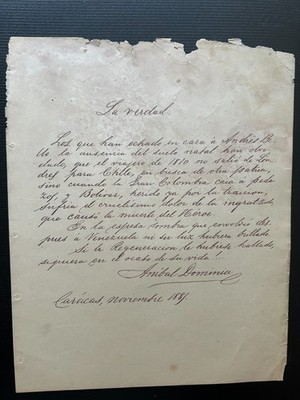 La verdad.
Los que han echado en cara á Andrés Be-
llo la ausencia del suelo natal han olvi-
dado, que el viajero de 1810 no salió de Lon-
dres para Chile, en busca de otra patria,
sino cuando la Gran Colombia caía á peda-
zos, y Bolívar, herido ya por la traicion,
sufría el cruelísimo dolor de la ingratitud,
que causó la muerte del Héroe.
En la espesa sombra que envolvió des-
pues á Venezuela no su luz hubiera brillado.
Si la Regeneracion le hubiese hallado,
siquiera en el ocaso de su vida!!
Anibal Dominici
Carácas, noviembre 1881.